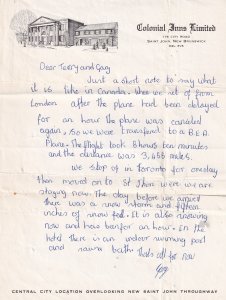 Colonial Inns Limited
175 CITY ROAD
SAINT JOHN, NEW BRUNSWICK
Dear Terry and Gary
Just a short note to say what
it is like in Canada. When we set of from
London after the plane had been delayed
for an hour the plane was canceled
again, so we were transferd to a B.E.A.
Plane. The flight took 8 hours ten minutes
and the distance was 3,456 miles.
we stop of in Toronto for one day
then moved on to St John were we are
staying now. The day before we arrived
there was a snow storm and fifteen
inches of snow fell. It is also snowing
now and has been for an hour. In the
hotel there is an indoor swimming pool
and sauna baths thats all for now
CENTRAL CITY LOCATION OVERLOOKING NEW SAINT JOHN THROUGHWAY